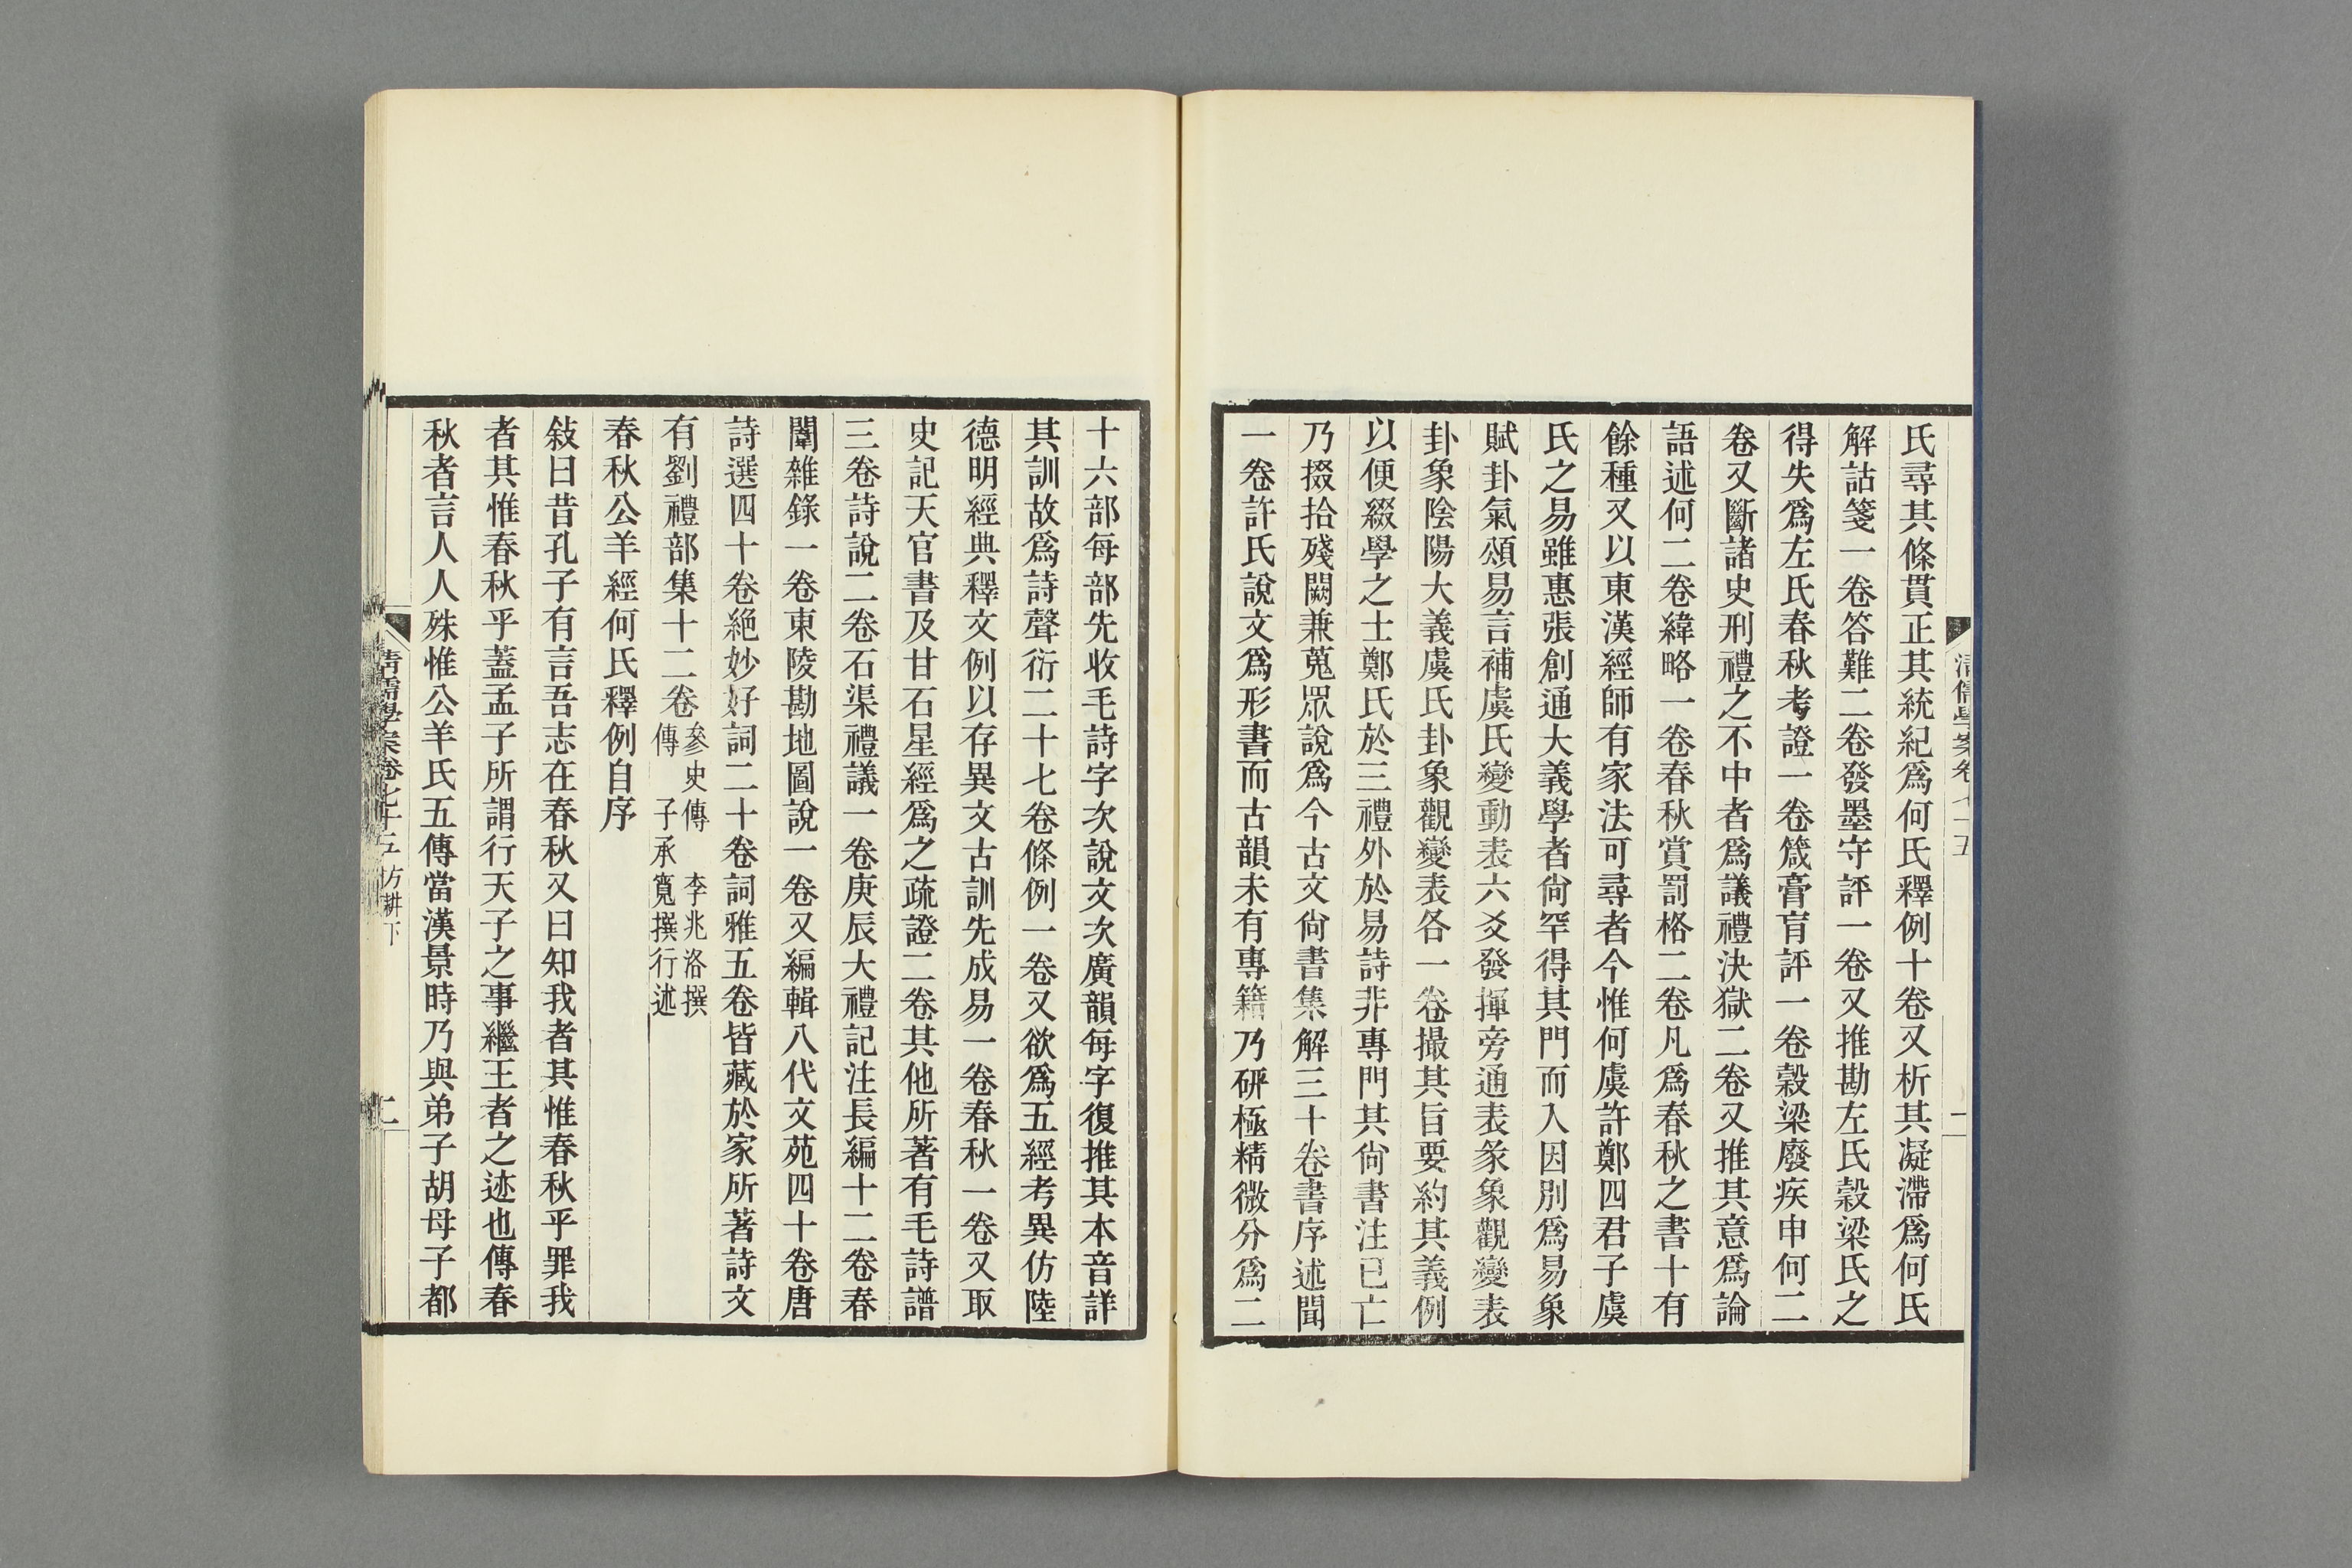 清儒學案卷七十五
二
氏尋其條貫正其統紀爲何氏釋例十卷又析其凝滯爲何氏
解詁箋一卷答難二卷發墨守評一卷又推勘左氏穀梁氏之
得失爲左氏春秋考證一卷箴膏肓評一卷穀梁廢疾申何二
卷又斷諸史刑禮之不中者爲議禮決獄二卷又推其意爲論
語述何二卷緯略一卷春秋賞罰格二卷凡爲春秋之書十有
餘種又以東漢經師有家法可尋者今惟何虞許鄭四君子虞
氏之易雖惠張創通大義學者尙罕得其門而入因別爲易象
賦卦氣頌易言補虞氏變動表六爻發揮旁通表彖象觀變表
卦象陰陽大義虞氏卦象觀變表各一卷撮其旨要約其義例
以便綴學之士鄭氏於三禮外於易詩非專門其尙書注已亡
乃掇拾殘闕兼蒐眾說爲今古文尙書集解三十卷書序述聞
一卷許氏說文爲形書而古韻未有專籍乃硏極精微分爲二
十六部每部先收毛詩字次說文次廣韻每字復推其本音詳
其訓故爲詩聲衍二十七卷條例一卷又欲爲五經考異仿陸
德明經典釋文例以存異文古訓先成易一卷春秋一卷又取
史記天官書及甘石星經爲之疏證二卷其他所著有毛詩譜
三卷詩說二卷石渠禮議一卷庚辰大禮記注長編十二卷春
闈雜錄一卷東陵勘地圖說一卷又編輯八代文苑四十卷唐
詩選四十卷絕妙好詞二十卷詞雅五卷皆藏於家所著詩文
有劉禮部集十二卷
參史傳　李兆洛撰
傳　子承寬撰行述
春秋公羊經何氏釋例自序
敍曰昔孔子有言吾志在春秋又曰知我者其惟春秋乎罪我
者其惟春秋乎蓋孟子所謂行天子之事繼王者之迹也傳春
秋者言人人殊惟公羊氏五傳當漢景時乃與弟子胡母子都
清儒學案卷七十五　方耕下
二